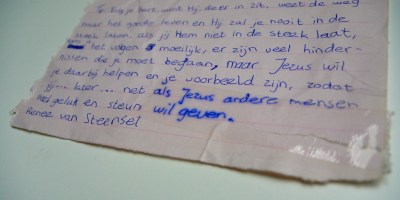 bij je hart, want Hij, deze in zit.. weet de weg
naar het goede leven en Hij zal je nooit in de
steek laten als jij Hem niet in de steek laat,
het volgen is moeilijk, er zijn veel hinder-
nissen die je moet begaan, maar Jezus wil
je daarbij helpen en je voorbeeld zijn, zodat
jij... later... net als Jezus andere mensen
wil geluk en steun wil geven.
Renee van Steensel